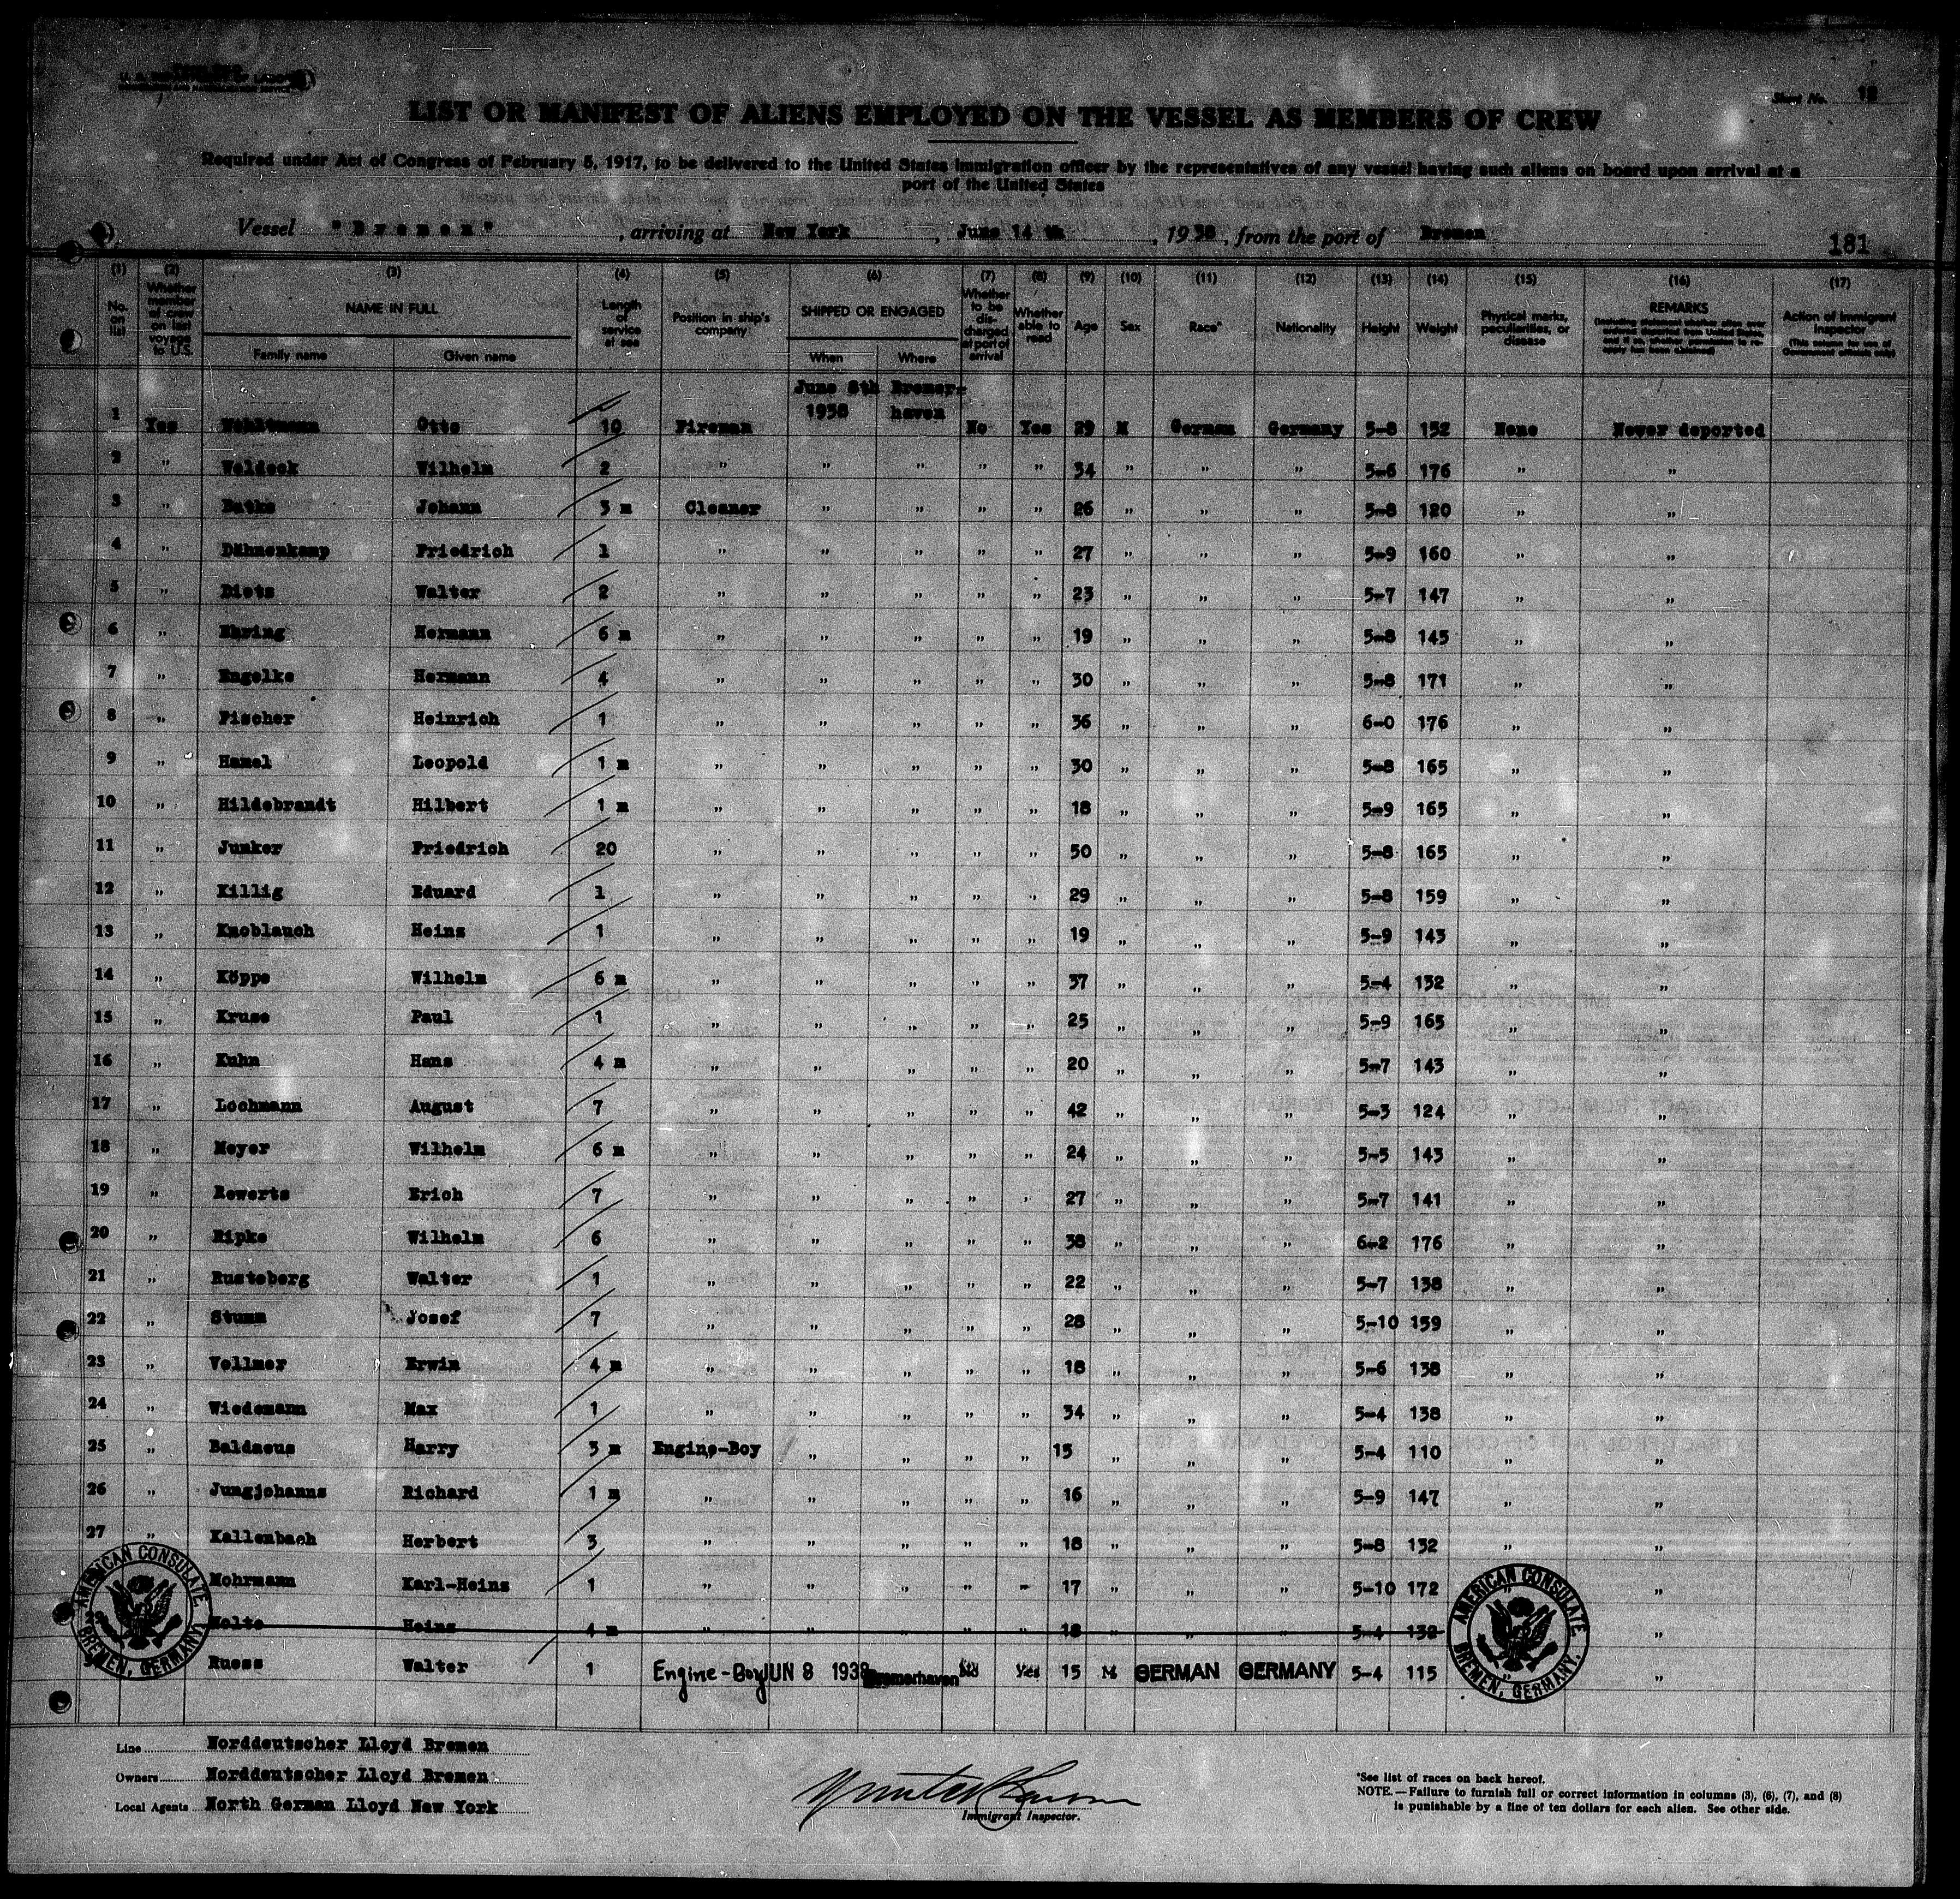 U. S. DEPARTMENT OF LABOR
Sheet No. 18
LIST OR MANIFEST OF ALIENS EMPLOYED ON THE VESSEL AS MEMBERS OF CREW
Required under Act of Congress of February 5, 1917, to be delivered to the United States immigration officer by the representatives of any vessel having such aliens on board upon arrival at a
port of the United States
Vessel "Bremen", arriving at New York, June 14 th, 1938, from the port of Bremen
181
(1) (2) (3) (4) (5) (6) (7) (8) (9) (10) (11) (12) (13) (14) (15) (16) (17)
No. on list Whether member of crew on last voyage to U.S. NAME IN FULL Length of service at sea Position in ship's company SHIPPED OR ENGAGED Whether to be discharged at port of arrival Whether able to read Age Sex Race* Nationality Height Weight Physical marks, peculiarities, or disease REMARKS Action of immigrant inspector
Family name Given name When Where (This column for use of Government officials only)
June 8th Bremer=
1938 haven
1 Yes Wahltmann Otto 10 Fireman No Yes 29 M German Germany 5-8 152 None Never deported
2 " Weldeck Wilhelm 2 " " " " " 34 " " " 5-6 176 " "
3 " Butke Johann 3 m Cleaner " " " " 26 " " " 5-8 120 " "
4 " Dähnenkamp Friedrich 1 " " " " " 27 " " " 5-9 160 " "
5 " Diets Walter 2 " " " " " 23 " " " 5-7 147 " "
6 " Ehring Hermann 6 m " " " " " 19 " " " 5-8 145 " "
7 " Engelke Hermann 4 " " " " " 30 " " " 5-8 171 " "
8 " Fischer Heinrich 1 " " " " " 36 " " " 6-0 176 " "
9 " Hamel Leopold 1 m " " " " " 30 " " " 5-8 165 " "
10 " Hildebrandt Hilbert 1 m " " " " " 18 " " " 5-9 165 " "
11 " Junker Friedrich 20 " " " " " 50 " " " 5-8 165 " "
12 " Killig Eduard 1 " " " " " 29 " " " 5-8 159 " "
13 " Knoblauch Heinz 1 " " " " " 19 " " " 5-9 143 " "
14 " Köppe Wilhelm 6 m " " " " " 37 " " " 5-4 132 " "
15 " Kruse Paul 1 " " " " " 25 " " " 5-9 165 " "
16 " Kuhn Hans 4 m " " " " " 20 " " " 5-7 143 " "
17 " Lochmann August 7 " " " " " 42 " " " 5-3 124 " "
18 " Meyer Wilhelm 6 m " " " " " 24 " " " 5-5 143 " "
19 " Rewerts Erich 7 " " " " " 27 " " " 5-7 141 " "
20 " Ripke Wilhelm 6 " " " " " 38 " " " 6-2 176 " "
21 " Rusteberg Walter 1 " " " " " 22 " " " 5-7 138 " "
22 " Stumm Josef 7 " " " " " 28 " " " 5-10 159 " "
23 " Vollmer Erwin 4 m " " " " " 18 " " " 5-6 138 " "
24 " Wiedemann Max 1 " " " " " 34 " " " 5-4 138 " "
25 " Baldaeus Harry 3 m Engine-Boy " " " " 15 " " " 5-4 110 " "
26 " Jungjohanns Richard 1 m " " " " " 16 " " " 5-9 147 " "
27 " Kallenbach Herbert 3 " " " " " 18 " " " 5-8 132 " "
Mohrmann Karl-Heinz 1 " " " " " 17 " " " 5-10 172 "
Nolte Heinz 4 m " " " " " 18 " " " 5-4 132 "
Ruess Walter 1 Engine-Boy JUN 8 1938 Bremerhaven No Yes 15 M GERMAN GERMANY 5-4 115 " "
AMERICAN CONSULATE BREMEN, GERMANY.
AMERICAN CONSULATE BREMEN, GERMANY.
Line Norddeutscher Lloyd Bremen
Owners Norddeutscher Lloyd Bremen
Local Agents North German Lloyd New York
Immigrant Inspector.
*See list of races on back hereof.
NOTE.—Failure to furnish full or correct information in columns (3), (6), (7), and (8)
is punishable by a fine of ten dollars for each alien. See other side.